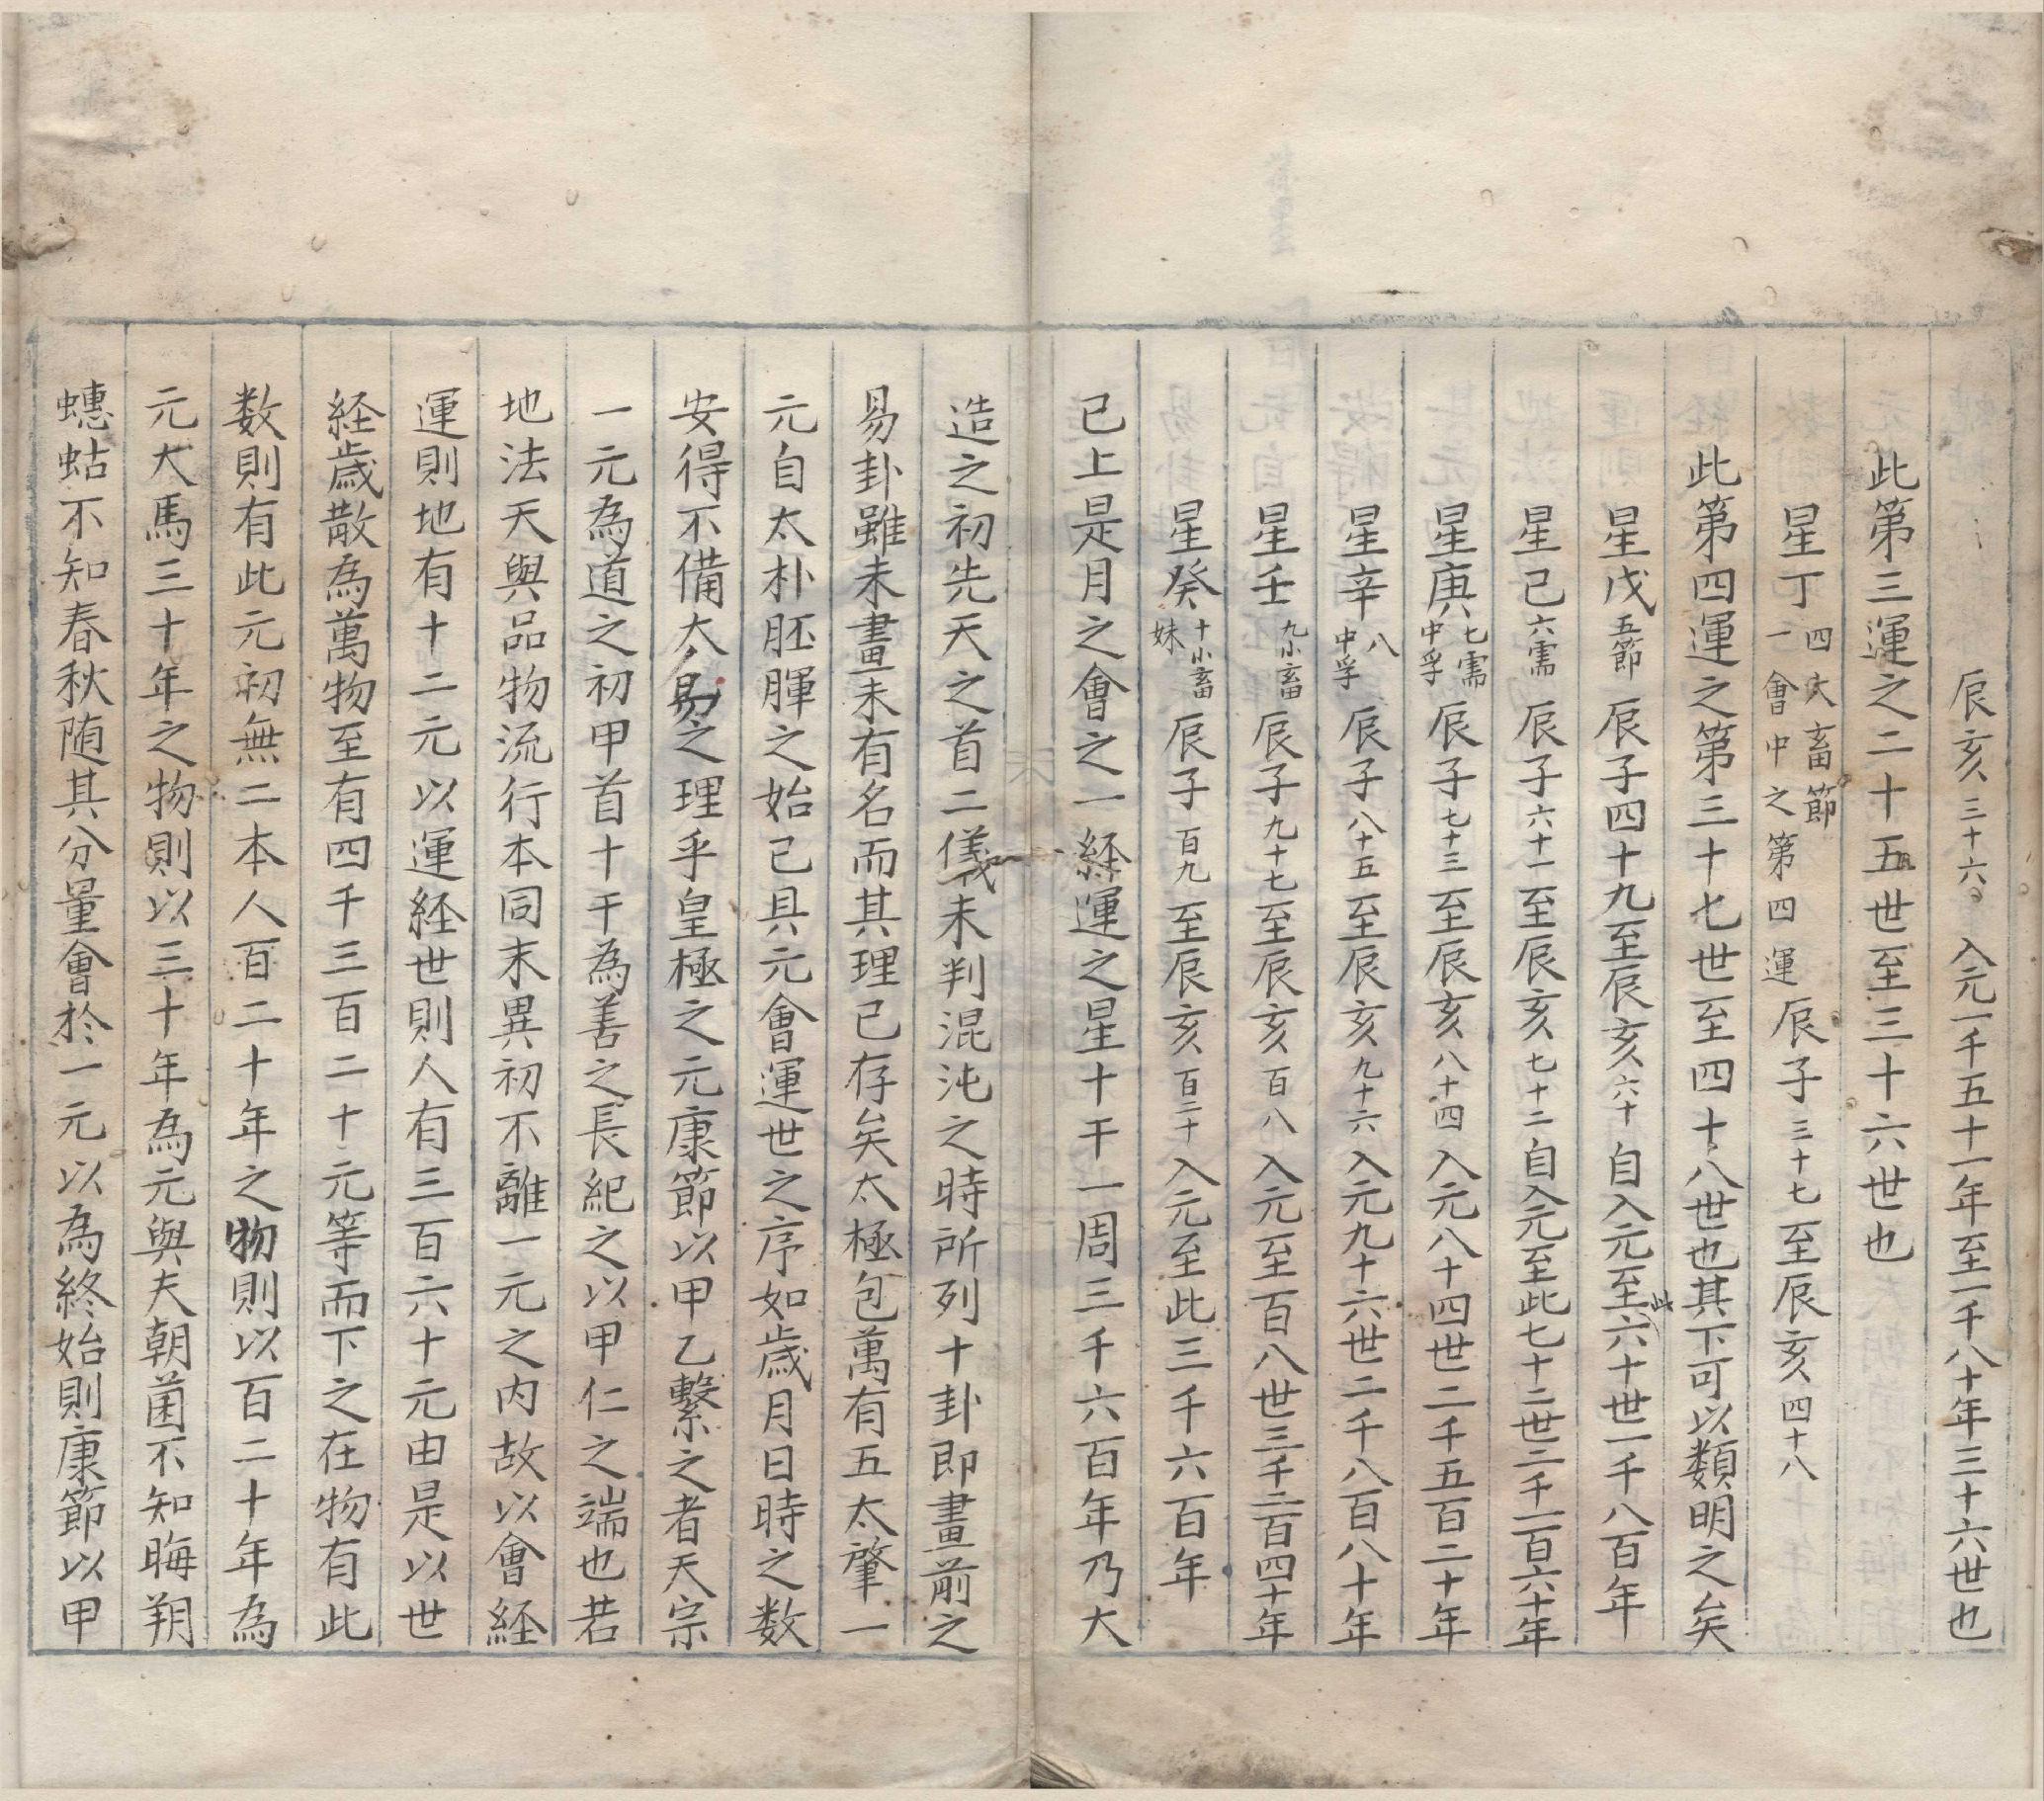 辰亥三十六入元一千五十一年至一千八十年三十六世也
此第三運之二十五世至三十六世也
星丁四大畜節一會中之第四運辰子三十七至辰亥四十八
此第四運之第三十七世至四十八世也其下可以類明之矣
星戊五節辰子四十九至辰亥六十自入元至此六十世一千八百年
星己六需辰子六十一至辰亥七十二自入元至此七十二世二千一百六十年
星庚七需中孚辰子七十三至辰亥八十四入元八十四世二千五百二十年
星辛八中孚辰子八十五至辰亥九十六入元九十六世二千八百八十年
星壬九小畜辰子九十七至辰亥百八入元至百八世三千二百四十年
星癸十小畜妹辰子百九至辰亥百二十入元至此三千六百年
已上是月之會之一經運之星十干一周三千六百年乃大
造之初先天之首二儀未判混沌之時所列十卦即畫前之
易卦雖未畫未有名而其理已存矣太極包萬有五太肇一
元自太朴胚腪之始已具元會運世之序如歲月日時之数
安得不備大易之理乎皇極之元康節以甲乙繫之者天宗
一元為道之初甲首十干為善之長紀之以甲仁之端也若
地法天與品物流行本同末異初不離一元之内故以會経
運則地有十二元以運経世則人有三百六十元由是以世
経歲散為萬物至有四千三百二十元等而下之在物有此
数則有此元初無二本人百二十年之物則以百二十年為
元犬馬三十年之物則以三十年為元與夫朝菌不知晦朔
蟪蛄不知春秋随其分量會於一元以為終始則康節以甲